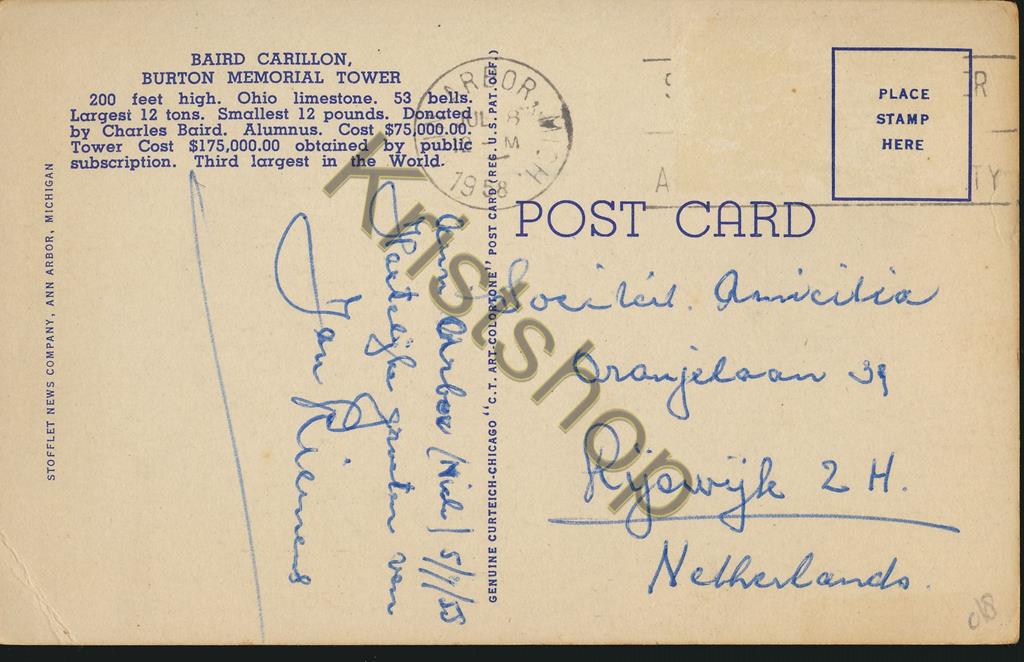 BAIRD CARILLON,
BURTON MEMORIAL TOWER
200 feet high. Ohio limestone. 53 bells.
Largest 12 tons. Smallest 12 pounds. Donated
by Charles Baird. Alumnus. Cost $75,000.00.
Tower Cost $175,000.00 obtained by public
subscription. Third largest in the World.
STOFFLET NEWS COMPANY, ANN ARBOR, MICHIGAN
ARBOR, MICH
JUL 8
12 M
1958
GENUINE CURTEICH-CHICAGO "C.T. ART-COLORTONE" POST CARD (REG. U.S. PAT. OFF.)
PLACE
STAMP
HERE
POST CARD
Ann Arbor (Mich)
Hartelijke groeten van
Jan Riemens
Societeit Amicitia
Oranjelaan 39
Rijswijk Z H.
Netherlands.
Kristshop